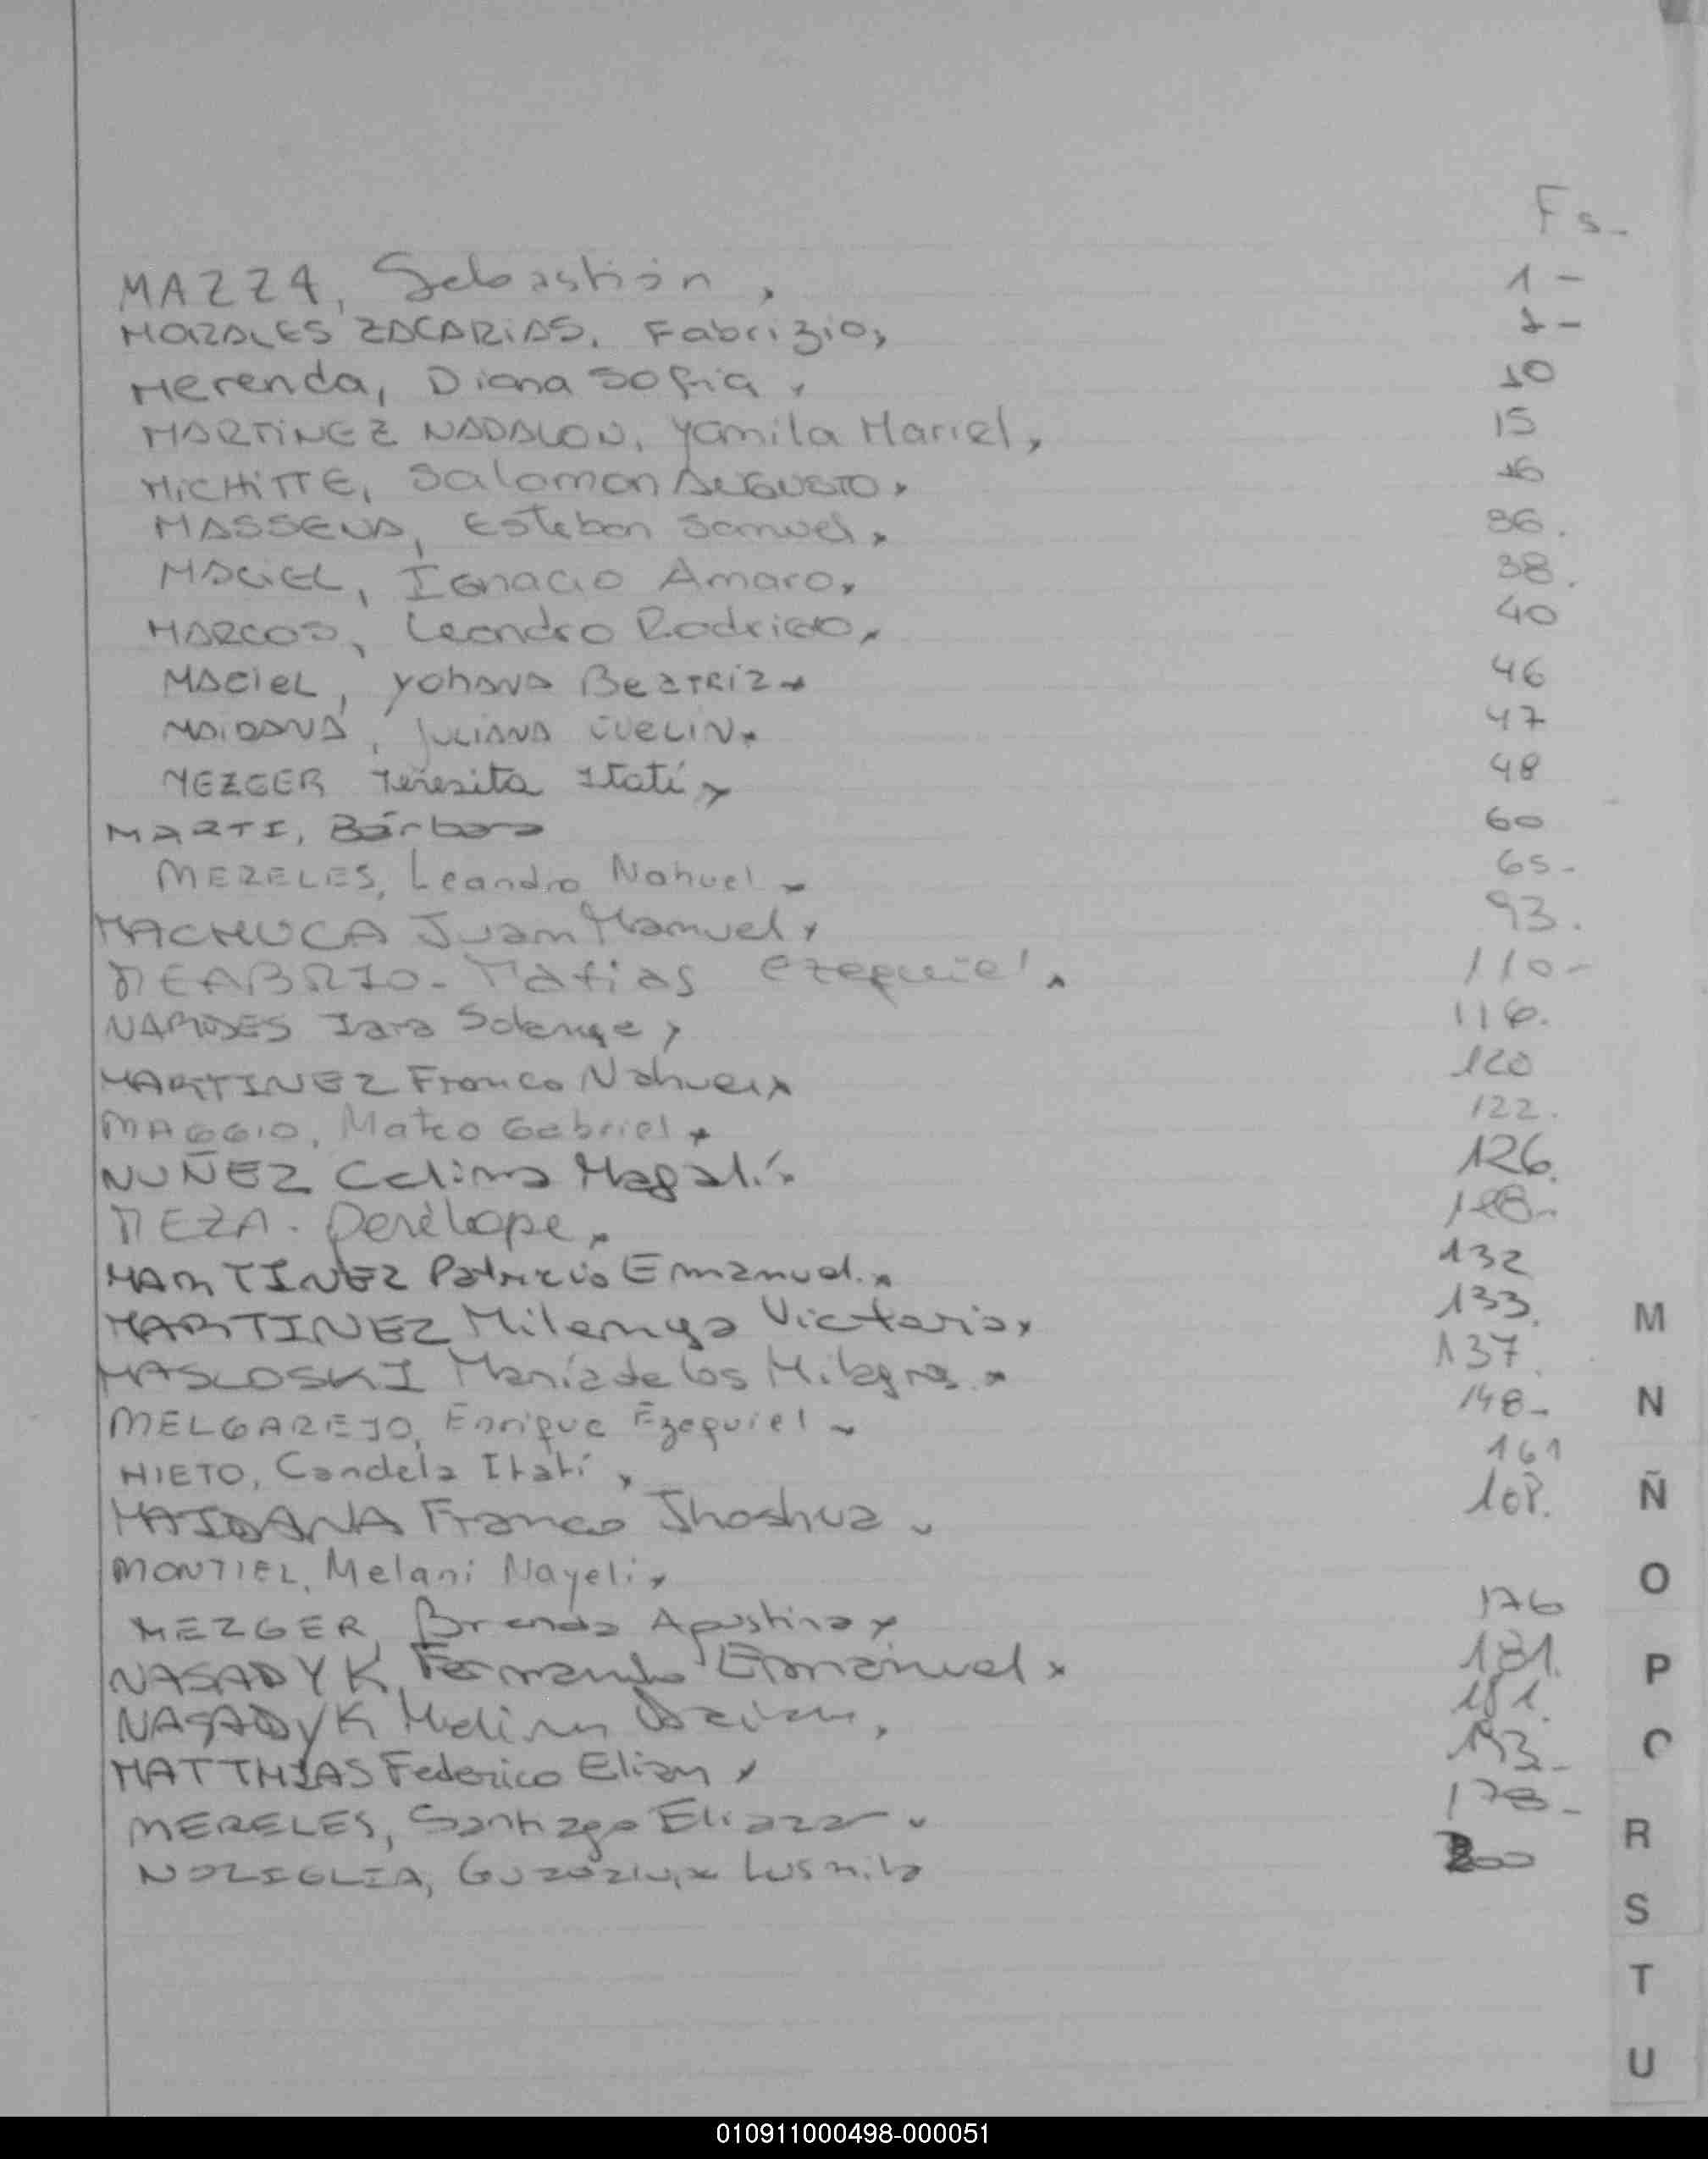 Fs_
MAZZA, Sebastián, 1-
MORALES ZACARIAS, Fabrizio, 7-
Merenda, Diana Sofia, 10
MARTINEZ NADALON, Yamila Mariel, 15
MICHITTE, Salomon AUGUSTO, 16
MASSEUD, Esteban Samuel, 36.
MACIEL, Ignacio Amaro, 38.
MARCOS, Leandro Rodrigo, 40
MACIEL, YOHANA BEATRIZ 46
MAIDANA, JULIANA EVELIN 47
MEZGER Teresita Itatí 48
MARTI, Bárbara 60
MERELES, Leandro Nahuel 65-
MACHUCA Juan Manuel 93.
MEABRIO- Matias Ezequiel 110-
Iara Solange 116.
MARTINEZ Franco Nahuel 120
MAGGIO, Mateo Gabriel 122.
NUÑEZ Celina Magalí 126.
MEZA- Penélope 128-
MARTINEZ Patricio Emanuel. 132
MARTINEZ Milenya Victoria 133.
MASLOSKI María de los Milagros 137.
MELGAREJO, Enrique Ezequiel 148-
NIETO, Candela Itatí, 161
MAIDANA Franco Jhoshua 168.
MONTIEL, Melani Nayeli
MEZGER, Brenda Agustina 176
NASADYK, Fernando Emanuel 181.
NASADYK 181.
MATTHIAS Federico Elian 193-
MERELES, Santiago Eliazar 178-
Lusmila 200
M
N
Ñ
O
P
R
S
T
U
010911000498-000051